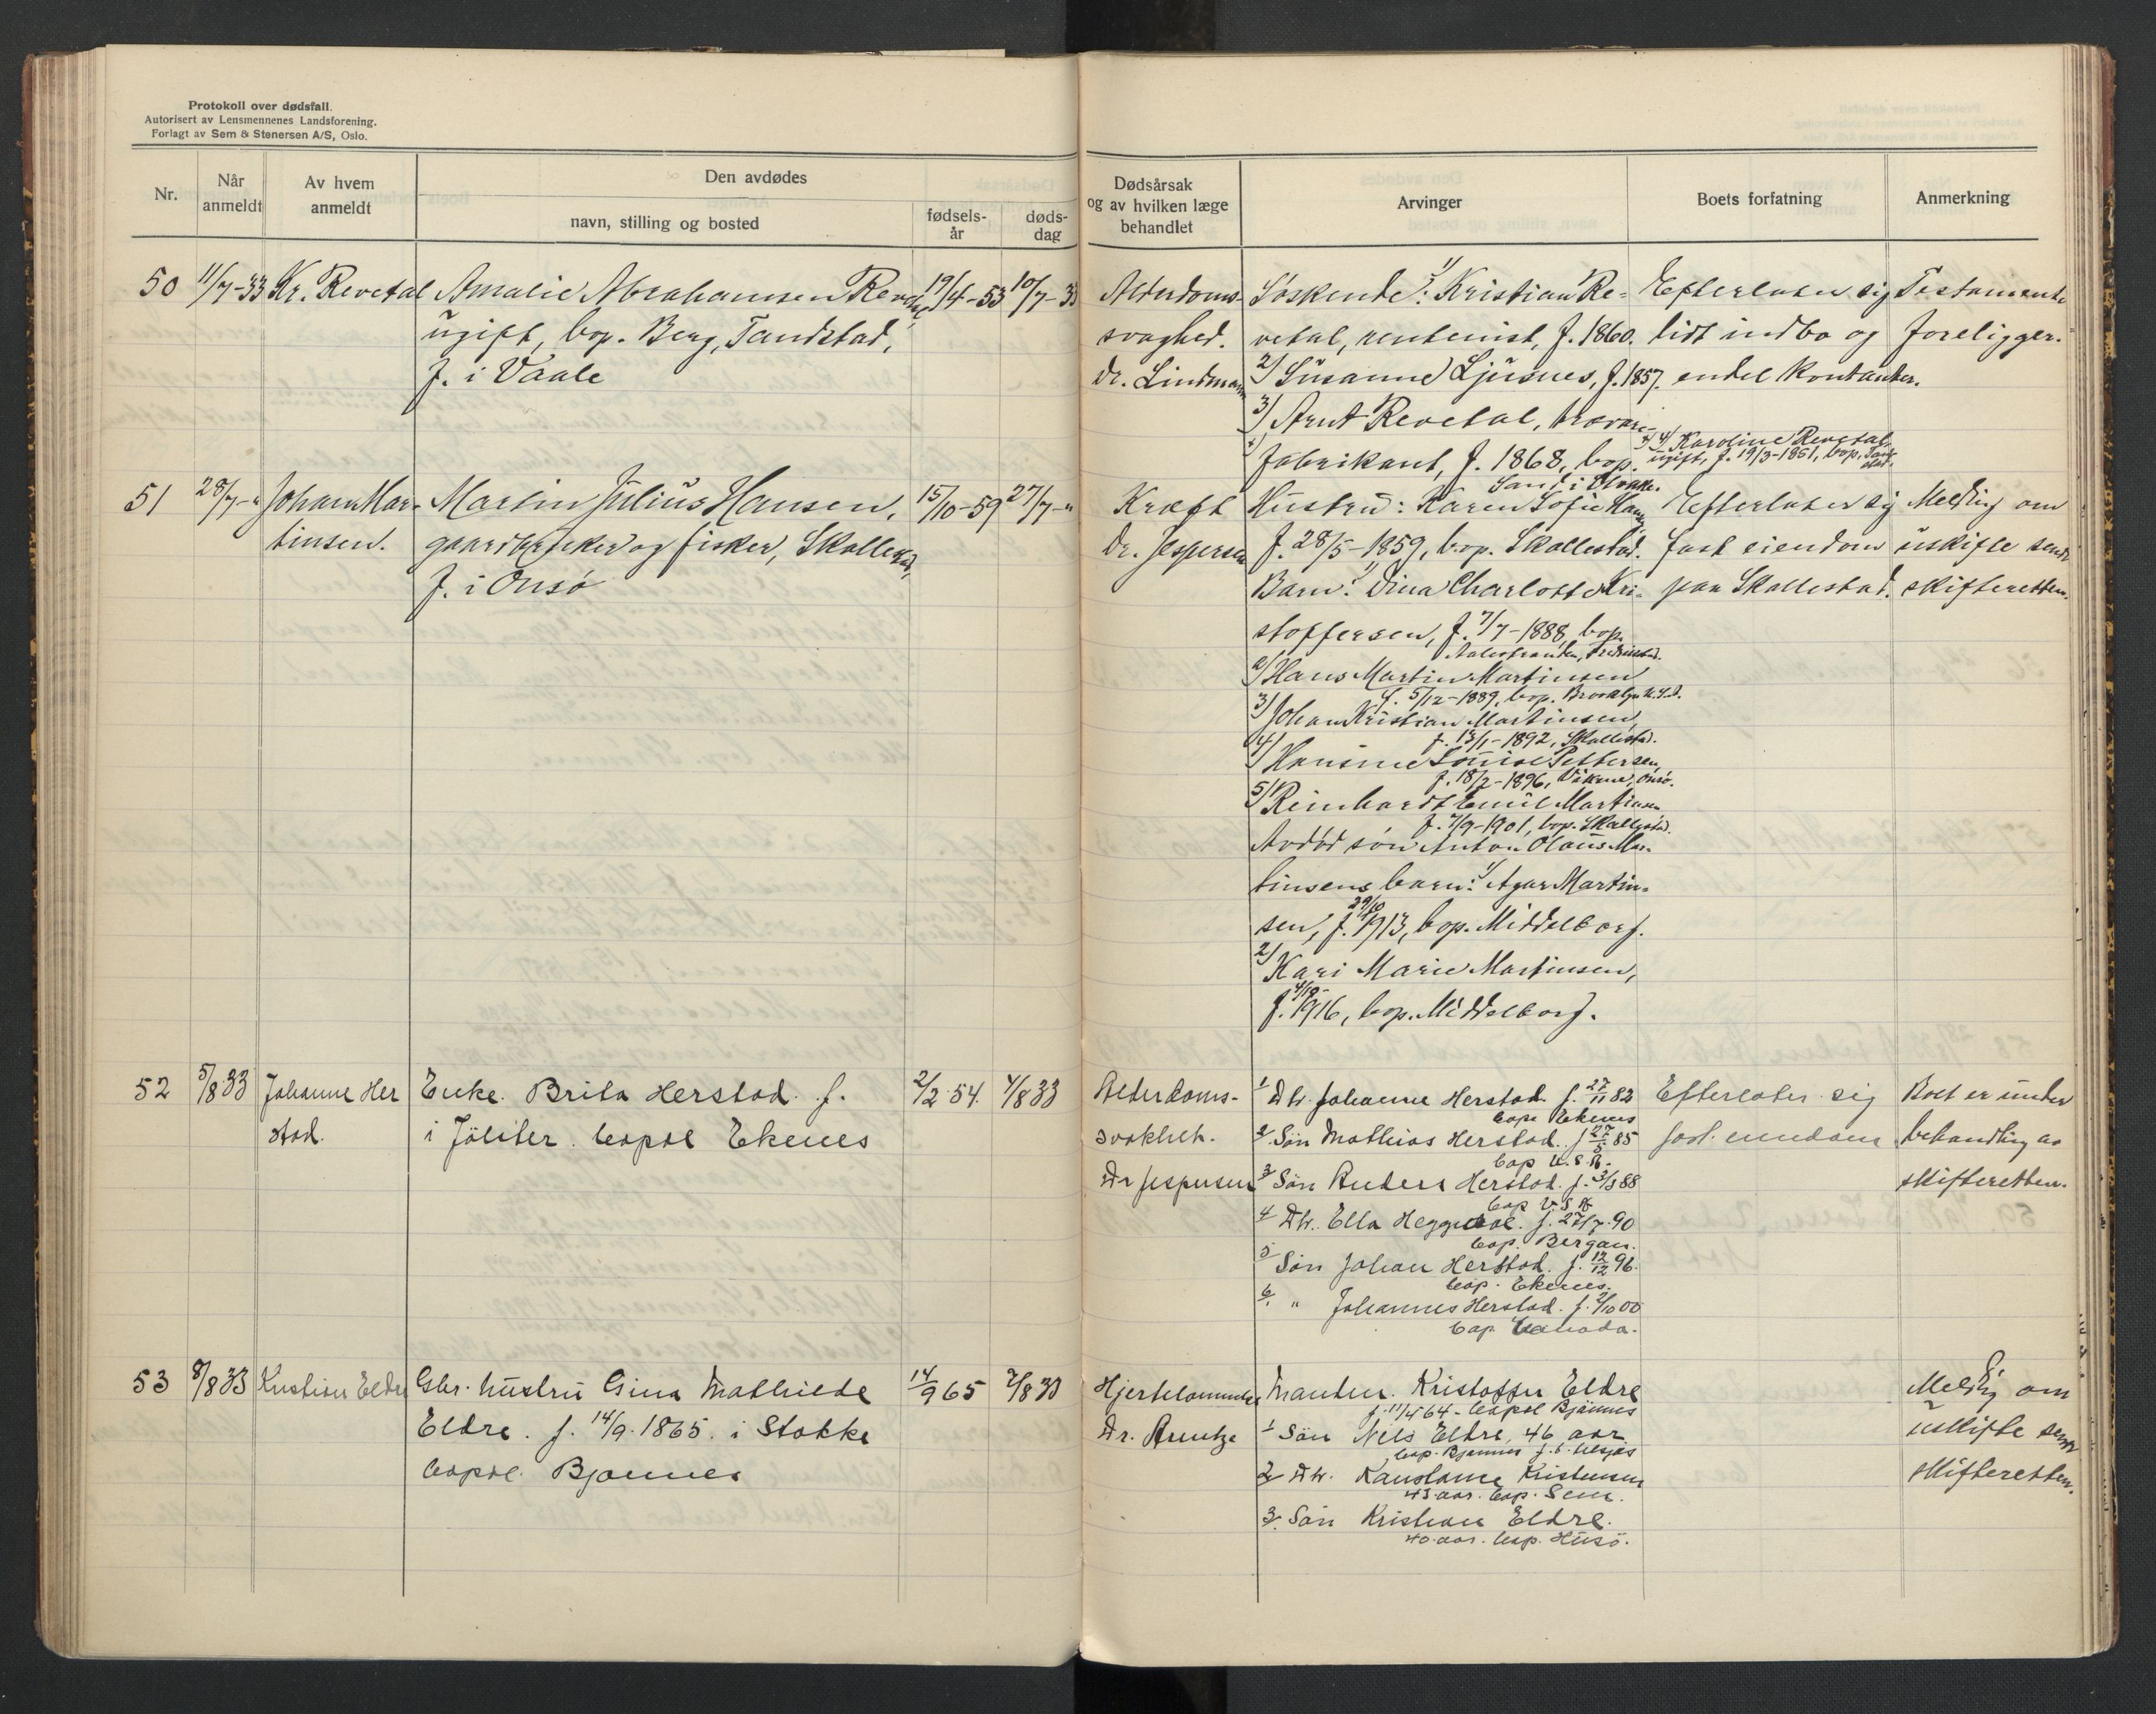 Protokoll over dødsfall.
Autorisert av Lensmennenes Landsforening.
Forlagt av Sem & Stenersen A/S, Oslo.
Nr.
Når anmeldt
Av hvem anmeldt
Den avdødes
navn, stilling og bosted
fødsels-år
døds-dag
Dødsårsak og av hvilken læge behandlet
Arvinger
Boets forfatning
Anmerkning
50 11/7-33 Kr. Revetal Amalie Abrahamsen Revetal, 19/4-53 10/7-33
ugift, bop. Berg, Tandstad,
f. i Vaale
Alderdoms-
svaghed.
Dr. Lindmann
Søskende: 1/ Kristian Re-
vetal, rentenist, f. 1860.
2/ Susanne Ljusnes, f. 1857.
3/ Arnt Revetal, trævare-
fabrikant, f. 1868, bop.
Sand i Stokke.
4/ Karoline Revetal,
ugift, f. 19/3-1851, bop. Tand-
stad.
Efterlater sig
lidt indbo og
endel kontanter.
Testamente
foreligger.
51 28/7-" Johan Mar- Martin Julius Hansen, 15/10-59 27/7-"
tinsen. gaardbruker og fisker, Skallestad,
f. i Onsø
Kræft
Dr. Jespersen
Hustru: Karen Sofie Hansen,
f. 28/5-1859, bop. Skallestad.
Barn: 1/ Dina Charlotte Kri-
stoffersen, f. 7/7-1888, bop.
Aalestranden, Fredrikstad.
2/ Hans Martin Martinsen
f. 5/12-1889, bop. Brooklyn U.S.A.
3/ Johan Kristian Martinsen,
f. 13/1-1892, Skallestad.
4/ Hansine Lovise Pettersen,
f. 18/2-1896, Vikene, Onsø.
5/ Reinhardt Emil Martinsen
f. 7/9-1901, bop. Skallestad.
Avdød søn Anton Olaus Mar-
tinsens barn: 1/ Agar Martin-
sen, f. 29/10 1913, bop. Middelborg.
2/ Kari Marie Martinsen,
f. 4/10-1916, bop. Middelborg.
Efterlater sig
fast eiendom
paa Skallestad.
Melding om
uskifte sendt
skifteretten.
52 5/8 33 Johanne Her Enke. Brita Herstad. f. 2/2 54. 4/8 33
stad. i Jölster. bopæl Ekenes
Alderdoms-
svakhet.
Dr Jespersen
1/ Dtr. Johanne Herstad. f. 27/11 82
bop. Ekenes
2/ Sön Mathias Herstad. f 27/5 85
bop U.S.A.
3/ Sön Anders Herstad. f. 3/3 88
bop U S A
4 Dtr. Ella Heggedal. f. 27/7.90
bop. Bergan.
5 Sön Johan Herstad. f. 12/12 96.
bop. Ekenes.
6/. " Johannes Herstad. f. 2/10 00
bop. Canada.
Efterlater sig
fast. eiendom
Boet er under
behandling av
skifteretten.
53 8/8 33 Kristian Eldre Gbr. hustru Gina Mathilde 14/9 65 7/8 33
Eldre. f. 14/9.1865. i Stokke
bopæl Bjønnes
Hjertelammelse
Dr. Arentze
Manden. Kristoffer Eldre
f. 11/4 64 - bopæl Bjønnes
1/ Sön Nils Eldre, 46 aar
bop. Bjønnes
2/ Dtr. Konstance Kristensen
43 aar. bop. Sem.
3/. Sön Kristian Eldre.
40 aar. bop. Husö.
Melding om
uskifte sendt
skifteretten.